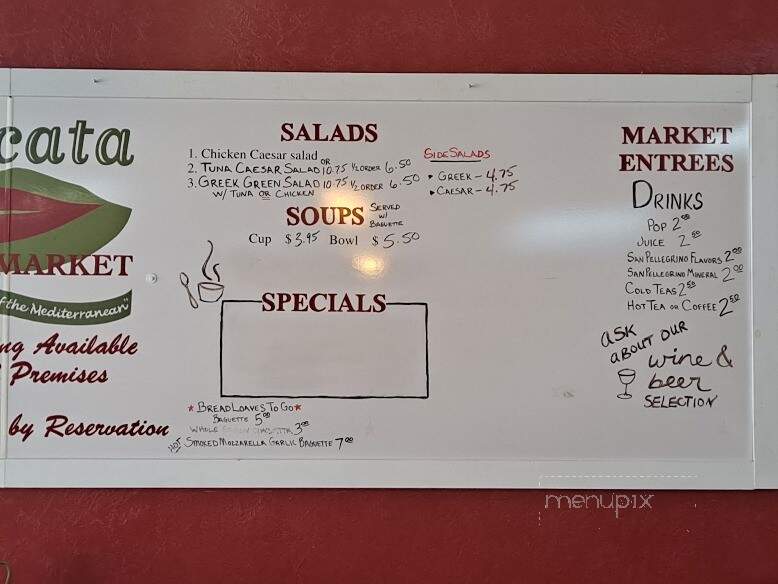 cata
MARKET
of the Mediterranean"
ng Available
Premises
by Reservation
SALADS
1. Chicken Caesar salad
OR
2. TUNA CAESAR SALAD 10.75 ½ ORDER 6.50
3. GREEK GREEN SALAD 10.75 ½ ORDER 6.50
W/ TUNA OR CHICKEN
SIDE SALADS
• GREEK - 4.75
• CAESAR - 4.75
SOUPS
SERVED
W/
BAGUETTE
Cup $3.95 Bowl $5.50
SPECIALS
* BREAD LOAVES TO GO *
BAGUETTE 5.00
WHOLE 3.00
HOT SMOKED MOZZARELLA GARLIC BAGUETTE 7.00
MARKET
ENTREES
DRINKS
POP 2.00
JUICE 2.50
SAN PELLEGRINO FLAVORS 2.00
SAN PELLEGRINO MINERAL 2.00
COLD TEAS 2.50
HOT TEA OR COFFEE 2.50
ASK
ABOUT OUR
wine &
beer
SELECTION
menupix